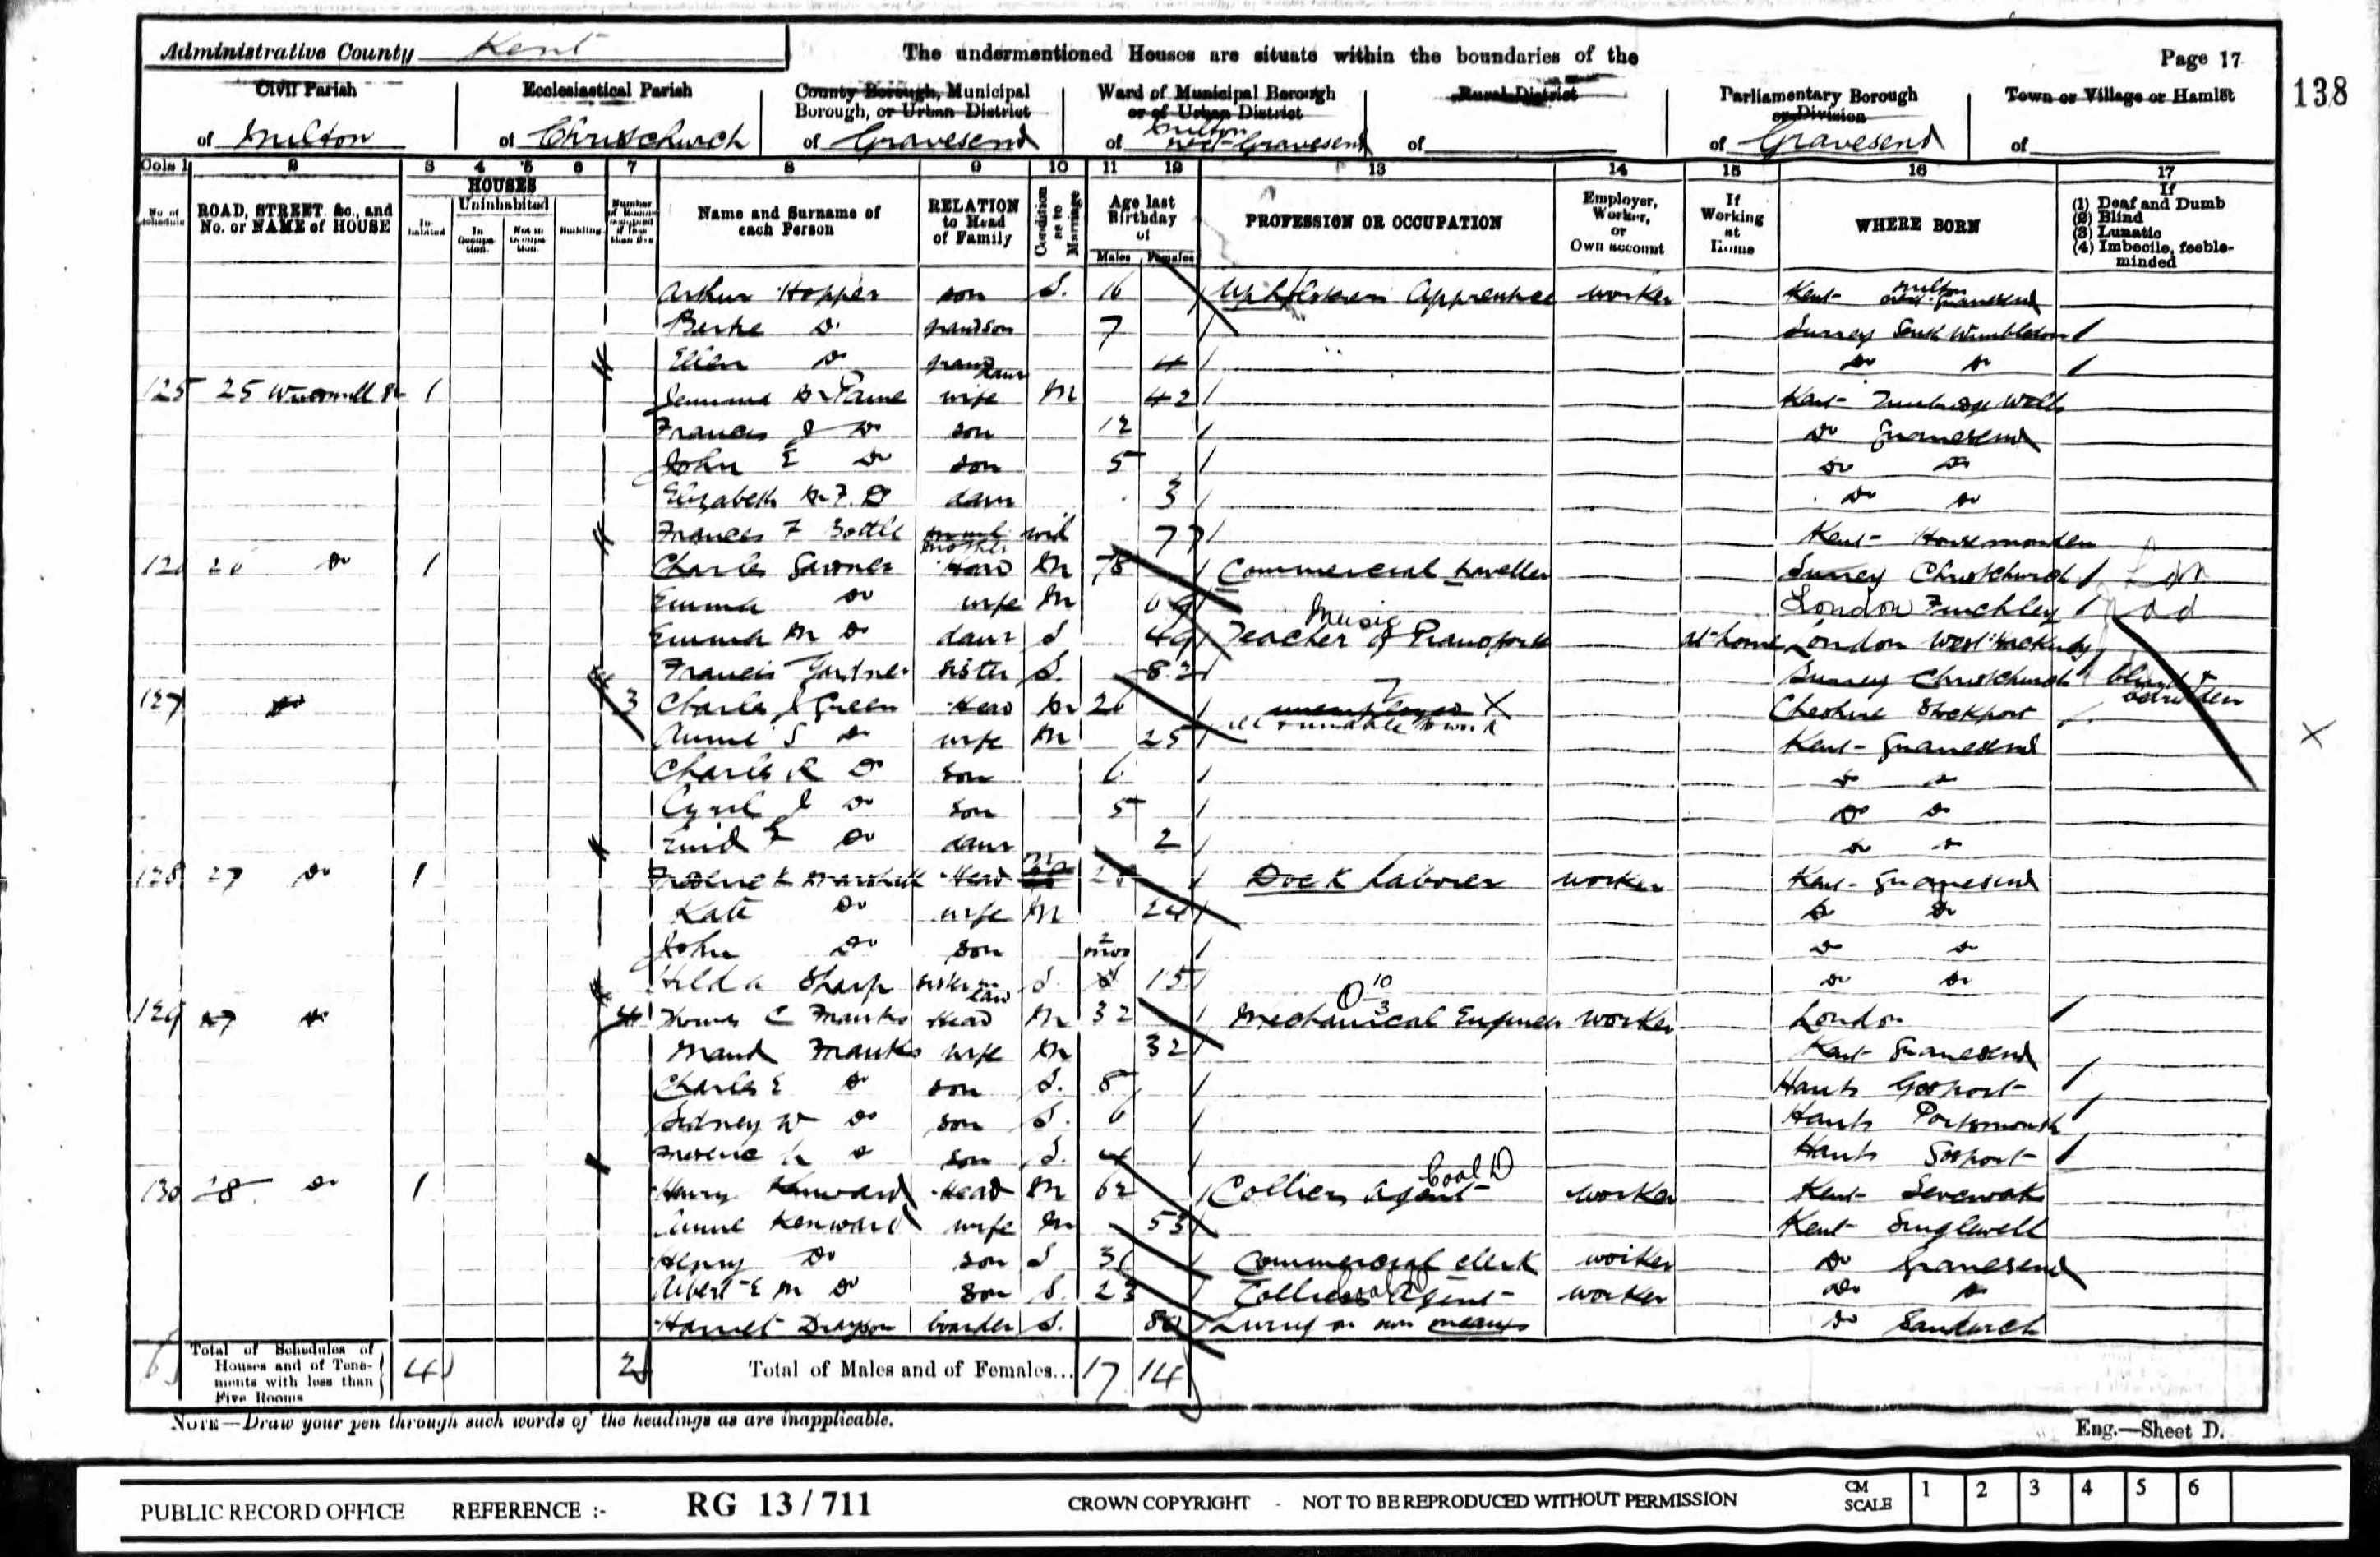 Administrative County Kent
The undermentioned Houses are situate within the boundaries of the
Page 17
138
Civil Parish
of Milton
Ecclesiastical Parish
of Christchurch
County Borough, Municipal
Borough, or Urban District
of Gravesend
Ward of Municipal Borough
or of Urban District
of Milton next Gravesend
Rural District
of
Parliamentary Borough
or Division
of Gravesend
Town or Village or Hamlet
of
Cols 1 2 3 4 5 6 7 8 9 10 11 12 13 14 15 16 17
No of Schedule
ROAD, STREET, &c., and No. or NAME of HOUSE
HOUSES
In-habited
Uninhabited
In Occupa-tion.
Not in Occupa-tion.
Building
Number of Rooms occupied if less than five
Name and Surname of each Person
RELATION to Head of Family
Condition as to Marriage
Age last Birthday of
Males Females
PROFESSION OR OCCUPATION
Employer, Worker, or Own account
If Working at Home
WHERE BORN
If
(1) Deaf and Dumb
(2) Blind
(3) Lunatic
(4) Imbecile, feeble-minded
Arthur Hopper son S. 16 Apprentice worker Kent Milton next Gravesend
Do grandson 7 Surrey South Wimbledon
Ellen Do grand daur 4 Do Do
125 25 1 Paine wife M 42 Kent Tunbridge Wells
Francis J Do son 12 Do Gravesend
John E Do son 5 Do Do
Elizabeth Do daur 3 Do Do
Frances F mother wid 77 Kent Horsmonden
126 26 Do 1 Charles Gardner Head M 78 Commercial traveller Surrey Christchurch Lon
Emma Do wife M 69 London Finchley
Emma M Do daur S 49 Teacher of Music Pianoforte at home London West Hackney
Francis Gardner sister S. 82 Surrey Christchurch blind & bedridden
127 Do 3 Charles J Green Head M 26 unemployed X ill & unable to work Cheshire Stockport
X
Annie S Do wife M 25 Kent Gravesend
Charles R Do son 6 Do Do
Cyril J Do son 5 Do Do
Enid E Do daur 2 Do Do
128 27 Do 1 Frederick Marshall Head M 28 Dock Laborer worker Kent Gravesend
Kate Do wife M 24 Do Do
John Do son 2 mos Do Do
Hilda Sharp sister in law S. 15 Do Do
129 27 Do 4 Thomas C Franks Head M 32 Mechanical Engineer worker London
Maud Franks wife M 32 Kent Gravesend
Charles E Do son S. 8 Hants Gosport
Sidney W Do son S. 6 Hants Portsmouth
Do son S. 4 Hants Gosport
130 28 Do 1 Henry Kenward Head M 62 Colliers Agent Coal D worker Kent Sevenoaks
Annie Kenward wife M 53 Kent Singlewell
Henry Do son S 31 Commercial Clerk worker Do Gravesend
Albert E M Do son S. 23 Colliers Agent worker Do Do
Harriet Drayson boarder S. 80 Living on own means Do Sandwich
6 Total of Schedules of Houses and of Tene-ments with less than Five Rooms 4 2 Total of Males and of Females... 17 14
NOTE—Draw your pen through such words of the headings as are inapplicable.
Eng.—Sheet D.
PUBLIC RECORD OFFICE REFERENCE :- RG 13/711 CROWN COPYRIGHT - NOT TO BE REPRODUCED WITHOUT PERMISSION CM SCALE 1 2 3 4 5 6